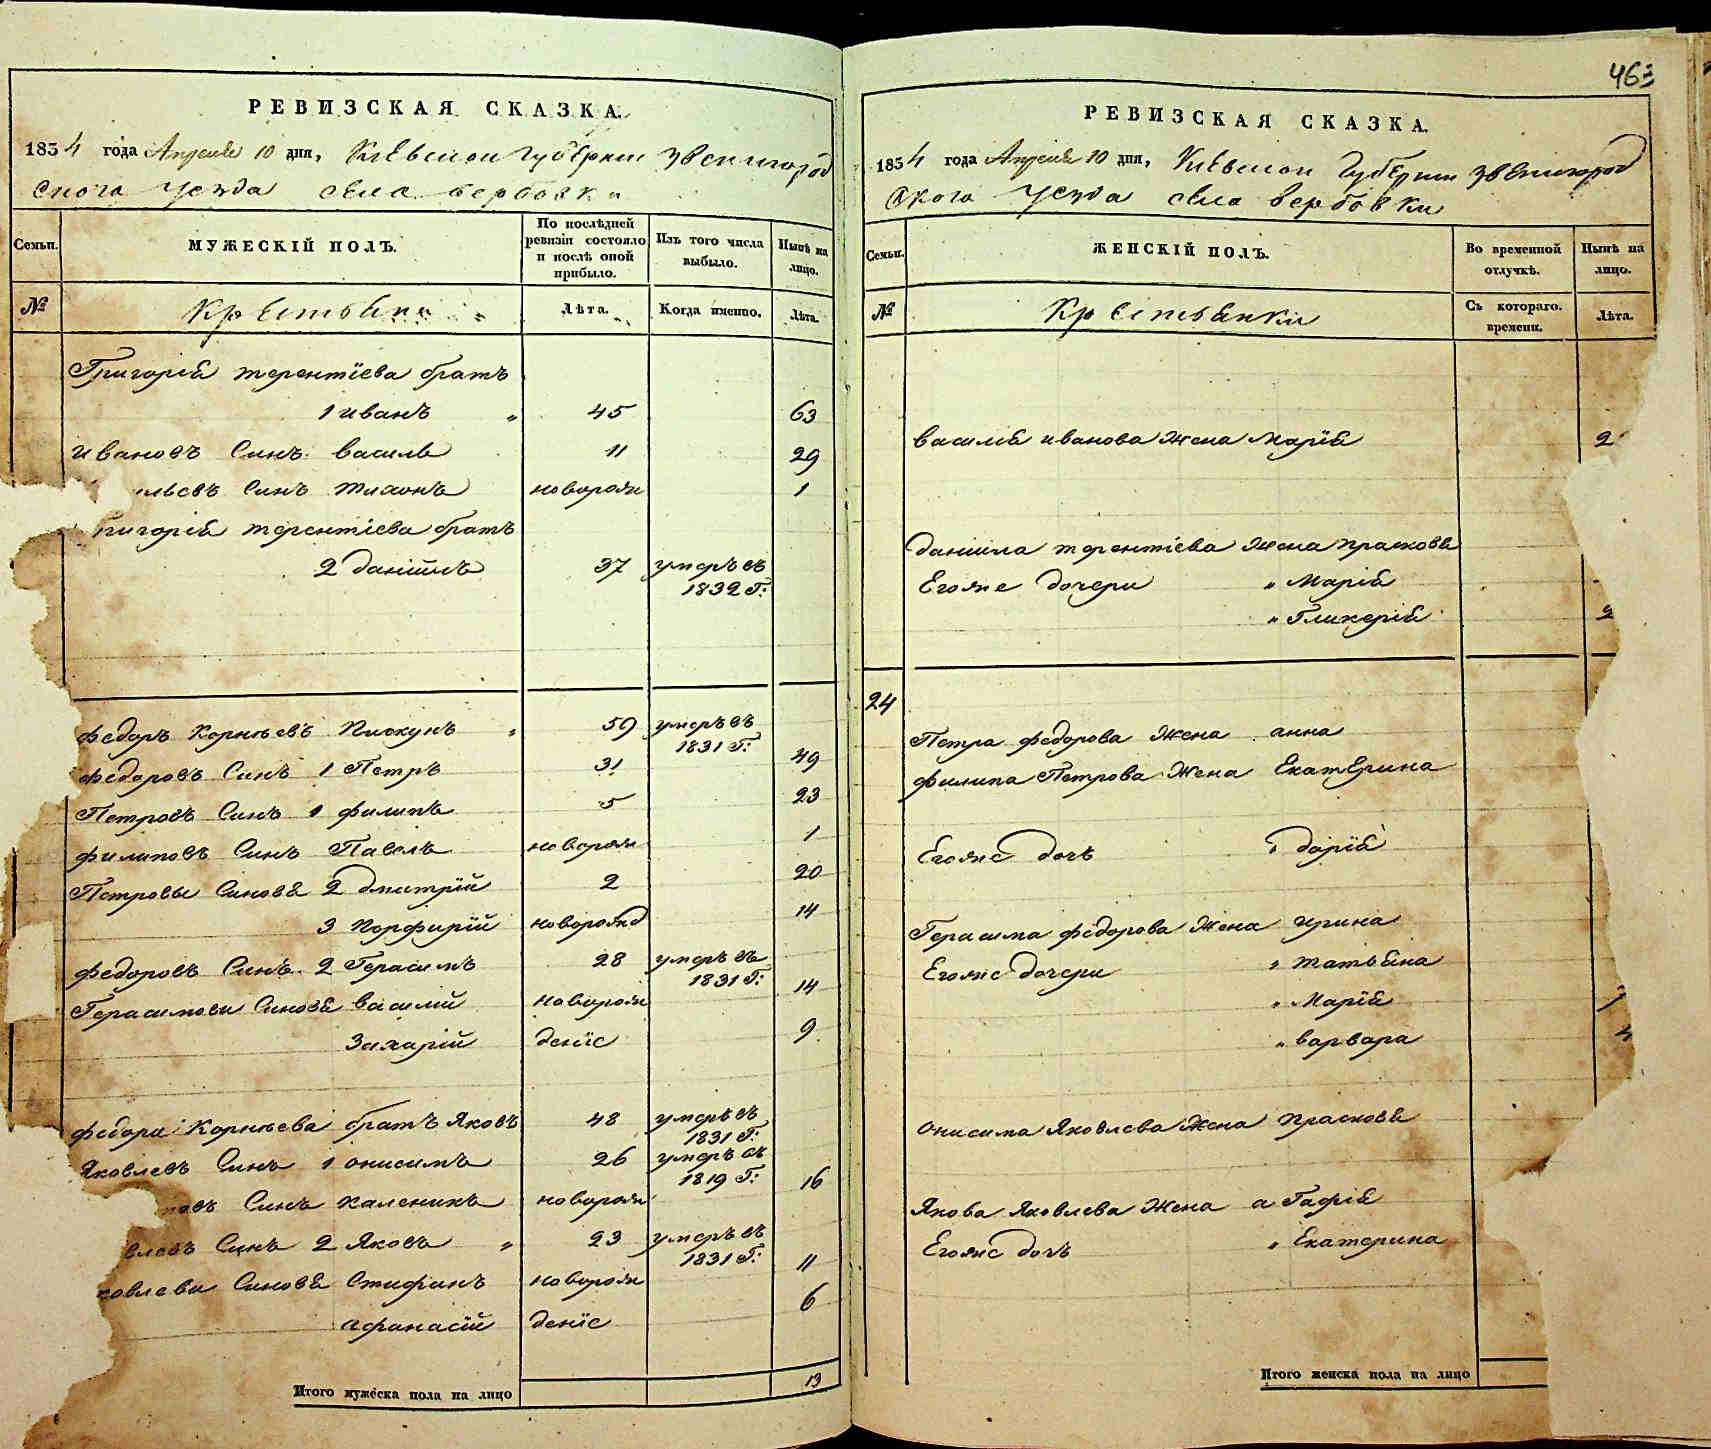 463
РЕВИЗСКАЯ СКАЗКА.
1834 года Апреля 10 дня, Киевской Губернии Звенигород
ского Уезда села Вербовки
Семьи.
МУЖЕСКІЙ ПОЛЪ.
По послѣдней ревизіи состояло и послѣ оной прибыло.
Изъ того числа выбыло.
Нынѣ на лицо.
№
Крестьяне
Лѣта.
Когда именно.
Лѣта.
Григорія терентіева братъ
1 иванъ 45 63
ивановъ Синъ василь 11 29
Синъ тихонъ новорож 1
григорія терентіева братъ
2 даніилъ 37 умеръ въ
1832 Г:
федоръ Корнѣевъ Пискунъ 59 умеръ въ
1831 Г:
федоровъ Синъ 1 Петръ 31 49
Петровъ Синъ 1 филипъ 5 23
филиповъ Синъ Павелъ новорож 1
Петровы Синовя 2 дмитрій 2 20
3 Порфирій новорожд 14
федоровъ Синъ 2 Герасимъ 28 умеръ въ
1831 Г:
Герасимови Синовя василій новорож 14
Захарій деніе 9
федора Корнѣева братъ Яковъ 48 умеръ въ
1831 Г:
Яковлевъ Синъ 1 онисимъ 26 умеръ въ
1819 Г:
Синъ каленикъ новорож 16
влевъ Синъ 2 Яковъ 23 умеръ въ
1831 Г:
ковлеви Синовя Стифанъ новорож 11
афанасій деніе 6
Итого мужеска пола на лицо 13
РЕВИЗСКАЯ СКАЗКА.
1834 года Апреля 10 дня, Киевской Губернии Звенигород
Ского Уезда села Вербовки
Семьи.
ЖЕНСКІЙ ПОЛЪ.
Во временной отлучкѣ.
Нынѣ на лицо.
№
Крестьянки
Съ котораго времени.
Лѣта.
василя иванова Жена Марія
даніила терентіева Жена Прасковя
Егоже дочери Марія
Гликерія
24
Петра федорова Жена анна
филипа Петрова Жена Екатерина
Егоже дочь дарія
Герасима федорова Жена Ирина
Егоже дочери татьяна
Марія
варвара
онисима Яковлева Жена Прасковя
Якова Яковлева Жена а Гафія
Егоже дочь Екатерина
Итого женска пола на лицо